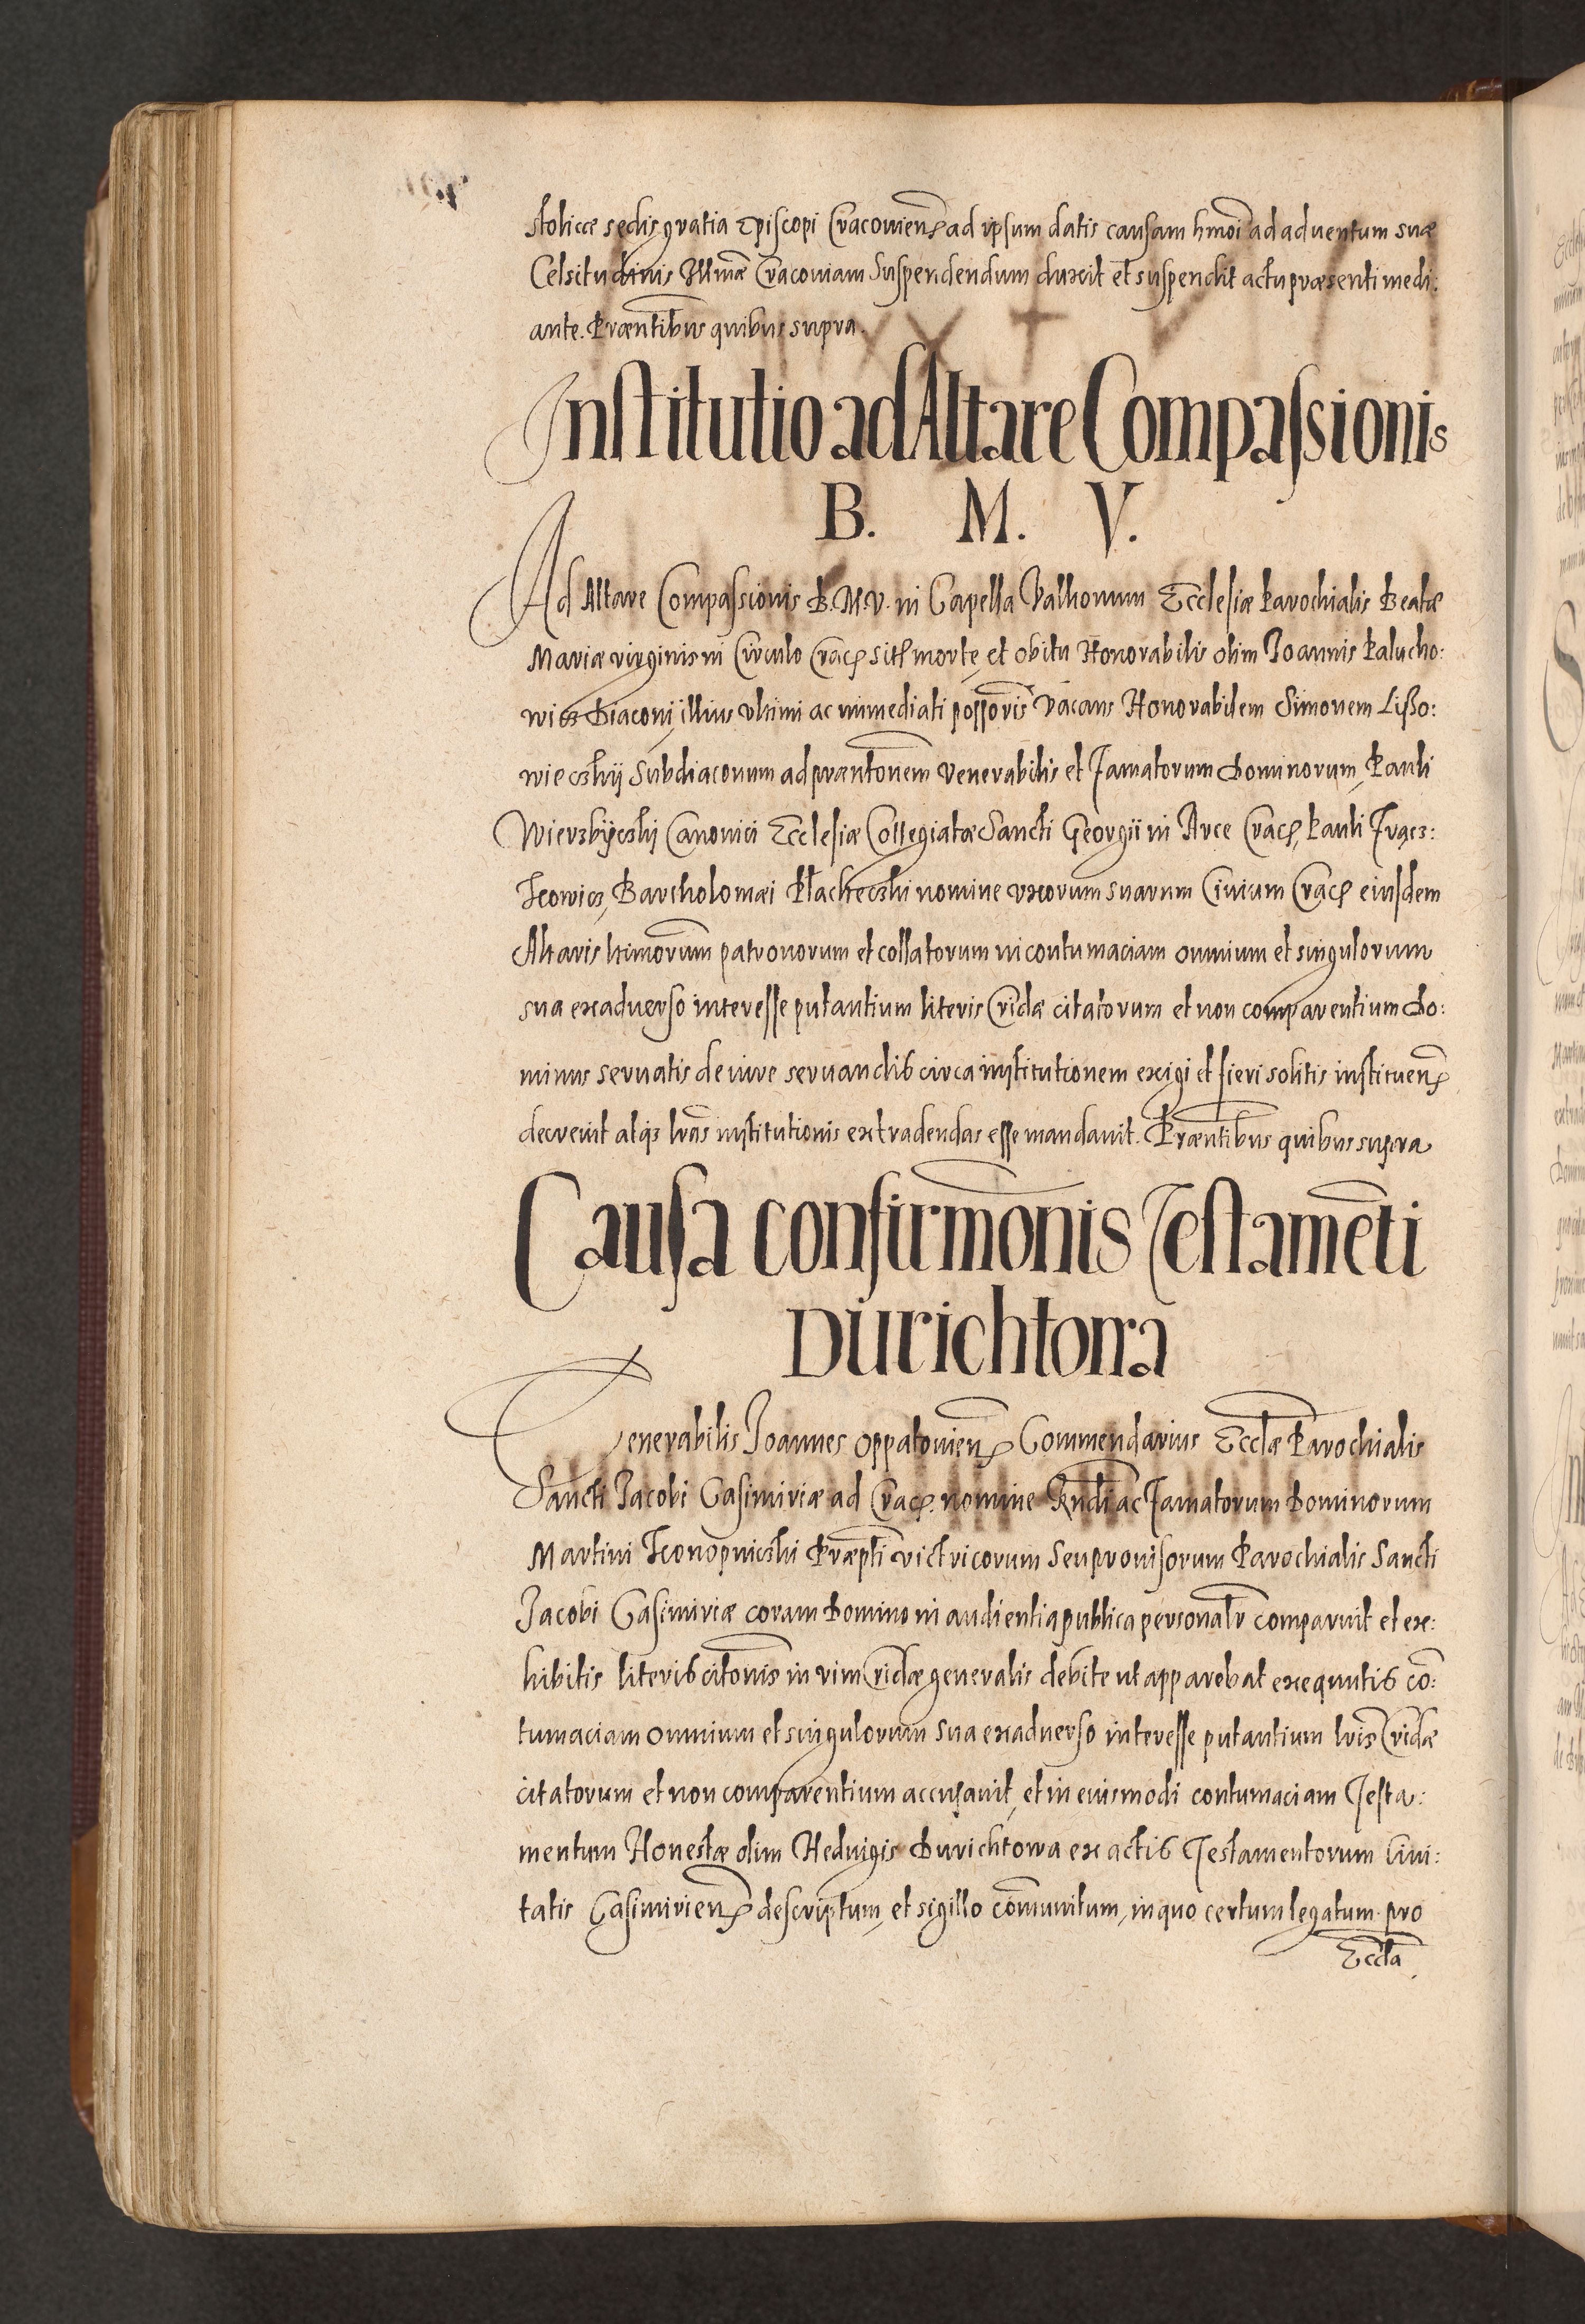 stolicæ sedis gratia Episcopi Cracouien ad ipsum datis causam hmoi ad aduentum suæ
Celsitudinis Illmæ Cracouiam Suspendendum duxit et suspendit actu præsenti medi:
ante. Præntibus quibus supra.
Institutio ad Altare Compaſsionis
B. M. V.
Ad Altare Compaſsionis B. M. V. in Capella Ecclesiæ Parochialis Beatæ
Mariæ virginis in Circulo Crac sit morte, et obitu Honorabilis olim Joannis Palucho:
wicz Diaconi, illius vltimi ac immediati possoris vacans Honorabilem Simonem Lißo:
wieczkij Subdiaconum ad præntonem Venerabilis et Famatorum Dominorum, Pauli
Canonici Ecclesiæ Collegiatæ Sancti Georgii in Arce Crac, Pauli
Bartholomæi nomine vxorum suarum Ciuium Crac eiusdem
Altaris ltimorum patronorum et collatorum in contumaciam omnium et singulorum
sua exaduerso interesse putantium literis Cridæ citatorum et non comparentium Do:
minus seruatis de iure seruandis circa institutionem exigi et fieri solitis instituen
decreuit atqz lras institutionis extradendas esse mandauit. Præntibus quibus supra
Causa confirmonis Testamēti
Durichtowa
Venerabilis Joannes Oppatouien Commendarius Ecclæ Parochialis
Sancti Jacobi Casimiriæ ad Crac. nomine Rndi ac Famatorum Dominorum
Martini Konopniczki Præpti victricorum Seu prouisorum Parochialis Sancti
Jacobi Casimiriæ coram Domino in audientia publica personalr comparuit et ex:
hibitis literis citonis in vim Cridæ generalis debite ut apparebat exequutis cō:
tumaciam omnium et singulorum sua exaduerso interesse putantium lris Cridæ
citatorum et non comparentium accusauit, et in eiusmodi contumaciam Testa:
mentum Honestæ olim Heduigis Durichtowa ex actis Testamentorum Ciui:
tatis Casimirien descriptum, et sigillo cōmunitum, in quo certum legatum pro
Eccla